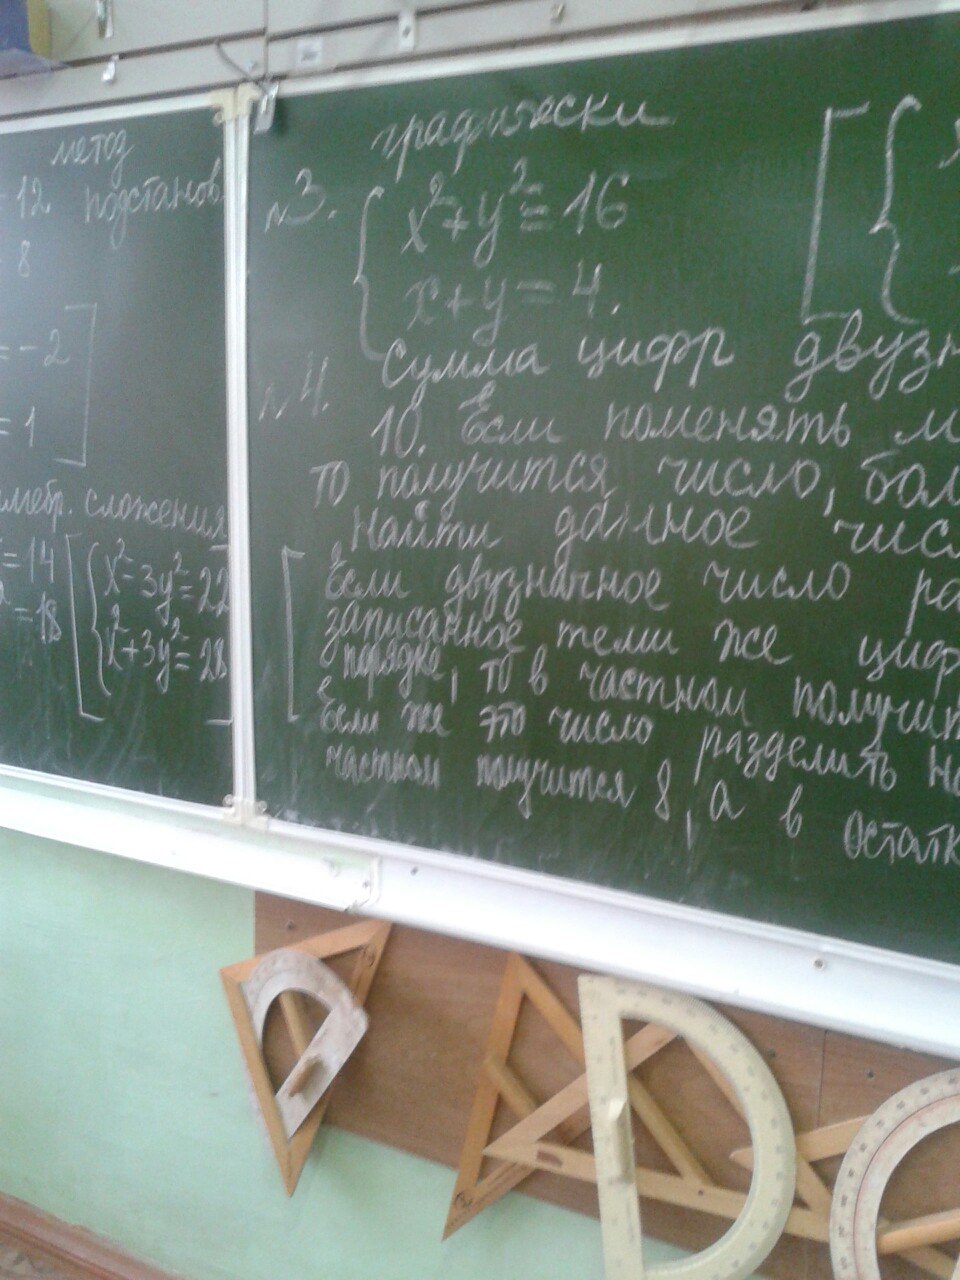 метод
= 12 подстанов
8
= -2
= 1
сложения
= 14
= 18
x² - 3y² = 22
x² + 3y² = 28
графически
№3.
x² + y² = 16
x + y = 4.
№4. Сумма цифр двузн
10. Если поменять м
то получится число, бол
Найти данное числ
Если двузначное число ра
записанное теми же цифр
порядке, то в частном получит
Если же это число разделить на
частном получится 8, а в остатк